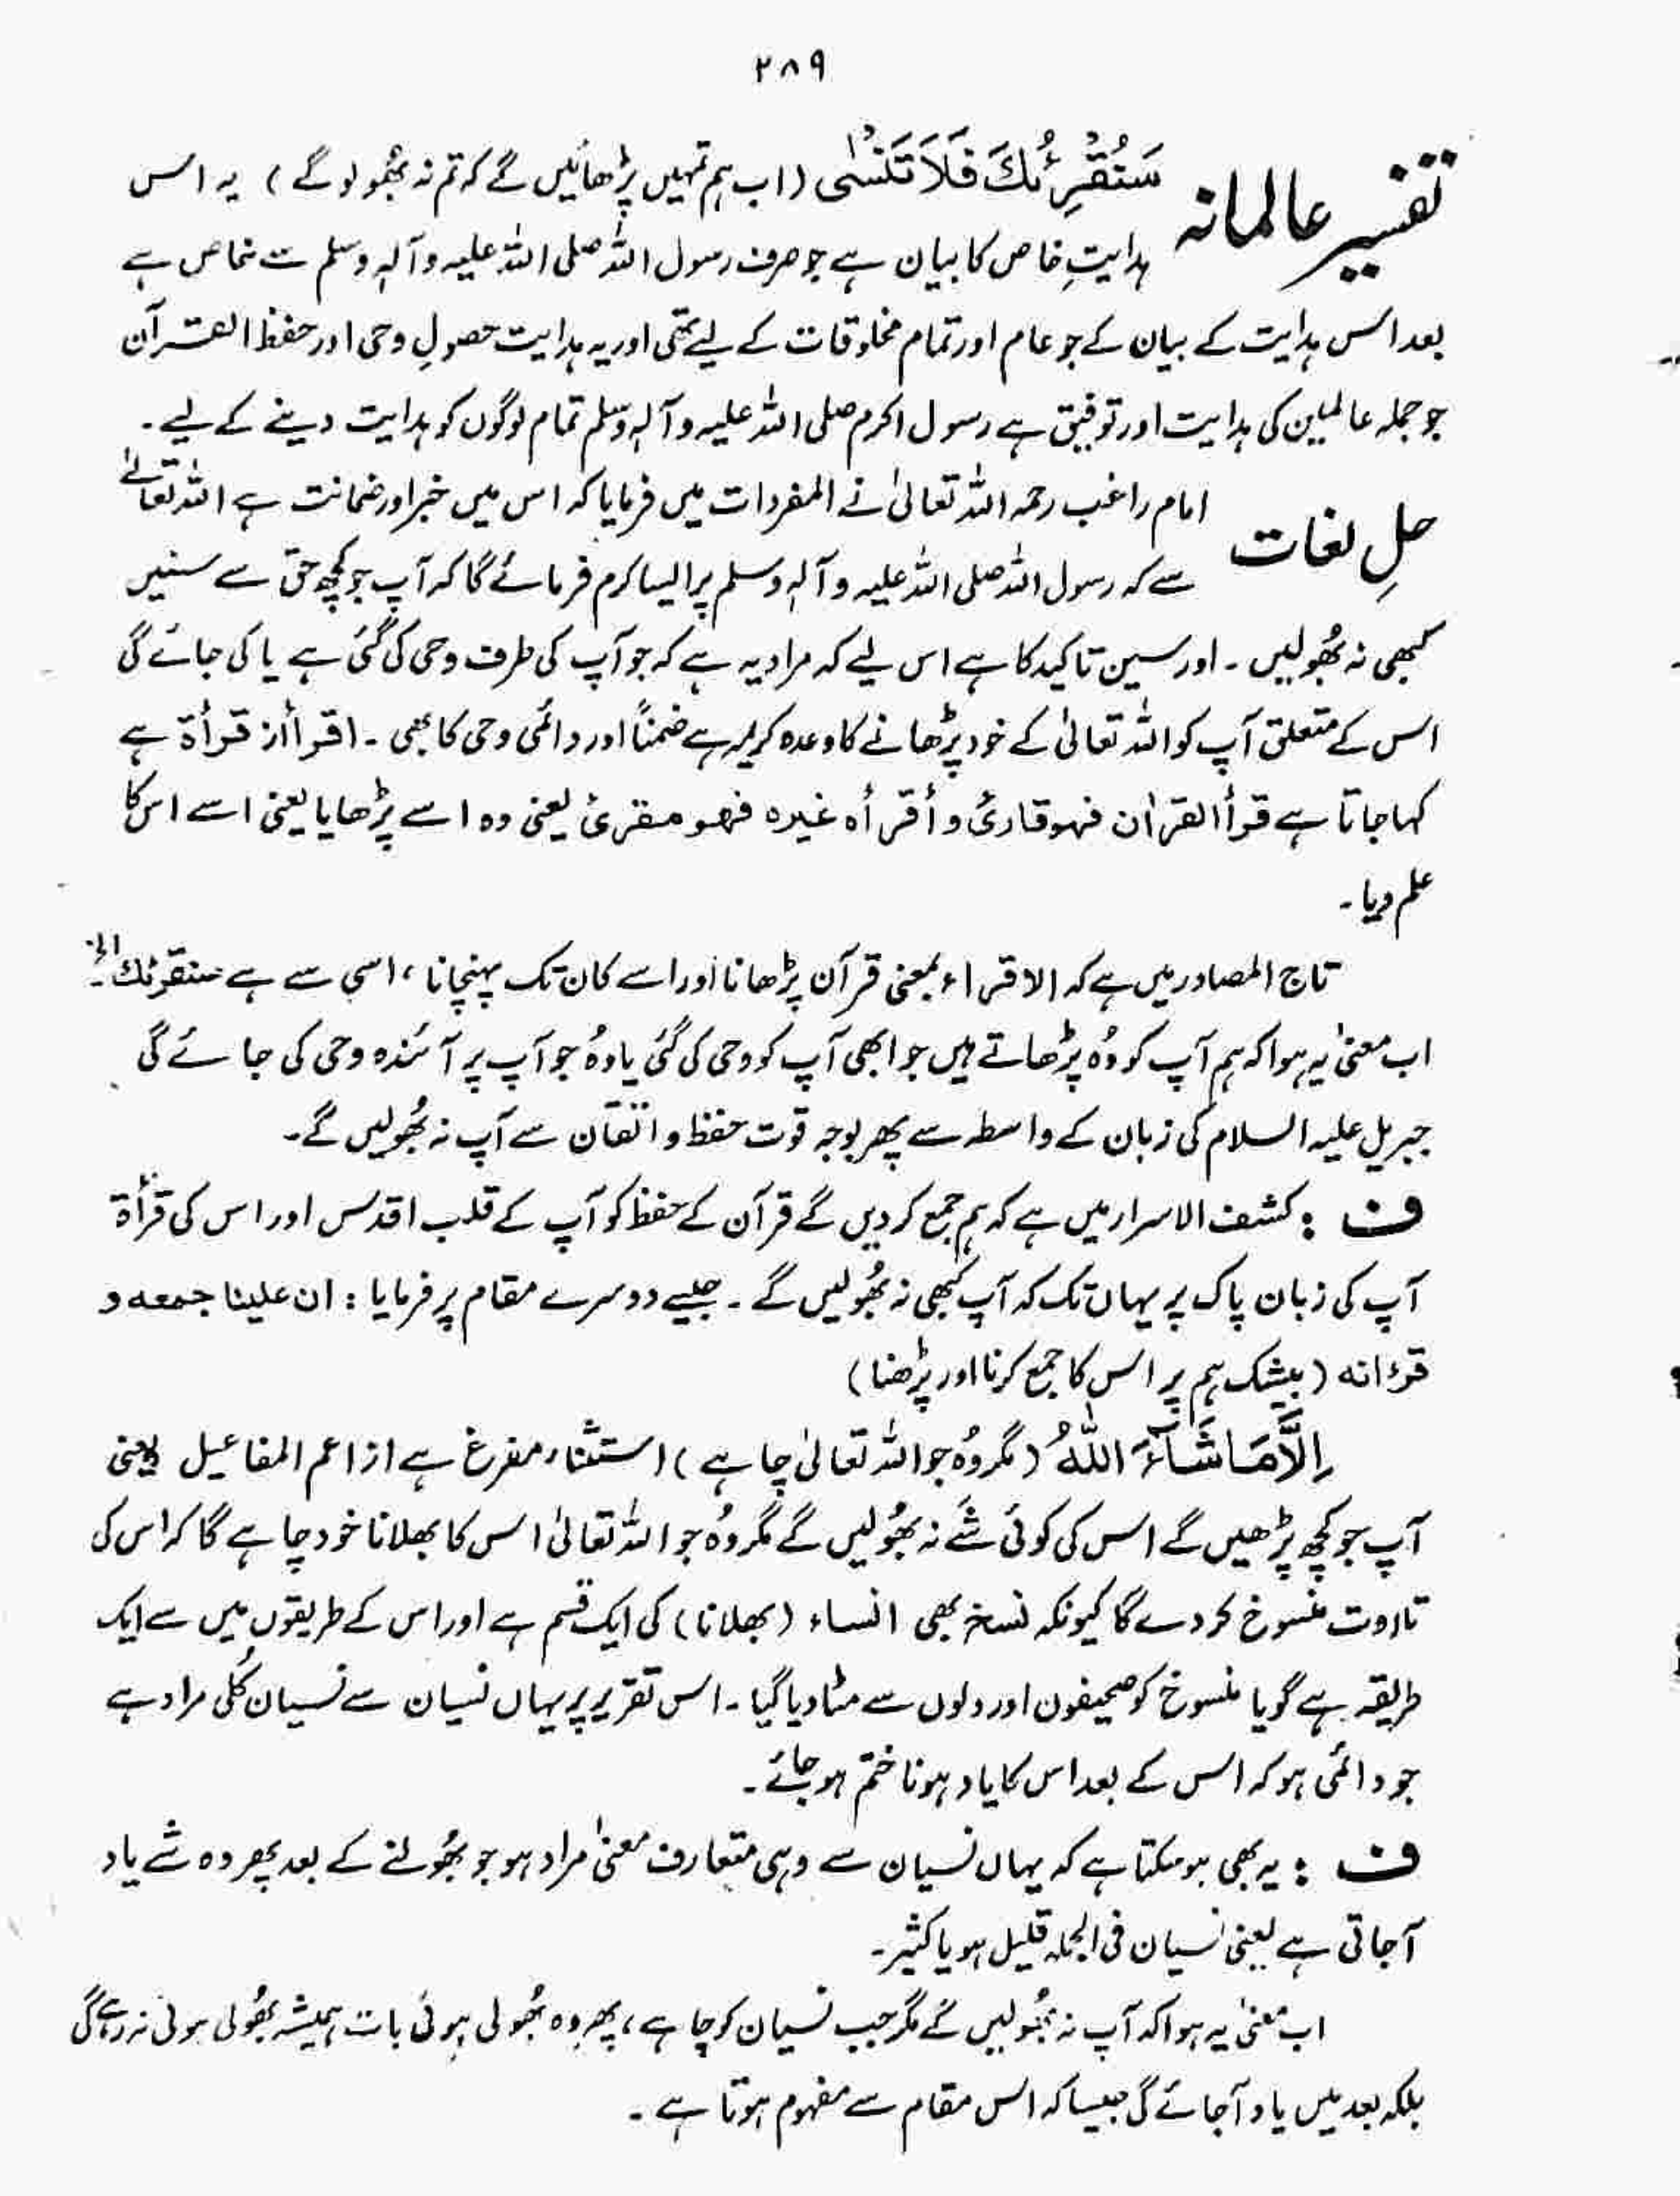 ۲۸۹
تفسیر عالمانہ سَنُقْرِئُكَ فَلَا تَنْسٰى (اب ہم تمہیں پڑھائیں گے کہ تم نہ بھُولو گے) یہ اس
ہدایتِ خاص کا بیان ہے جو صرف رسول اللہ صلی اللہ علیہ وآلہٖ وسلم سے خاص ہے
بعد اس ہدایت کے بیان کے جو عام اور تمام مخلوقات کے لیے تھی اور یہ ہدایت حصولِ وحی اور حفظ القرآن
جو جملہ عالمین کی ہدایت اور توفیق ہے رسول اکرم صلی اللہ علیہ وآلہٖ وسلم تمام لوگوں کو ہدایت دینے کے لیے۔
حلِ لغات امام راغب رحمہ اللہ تعالیٰ نے المفردات میں فرمایا کہ اس میں خبر اور ضمانت ہے اللہ تعالےٰ
سے کہ رسول اللہ صلی اللہ علیہ وآلہٖ وسلم پر ایسا کرم فرمائے گا کہ آپ جو کچھ حق سے سنیں
کبھی نہ بھُولیں۔ اور سین تاکید کا ہے اس لیے کہ مراد یہ ہے کہ جو آپ کی طرف وحی کی گئی ہے یا کی جائے گی
اس کے متعلق آپ کو اللہ تعالیٰ کے خود پڑھانے کا وعدہ کریمہ ہے ضمناً اور دائمی وحی کا بھی۔ اقرأ از قرأۃ ہے
کہا جاتا ہے قرأ القراٰن فہو قارئ و أقرأہ غیرہ فھو مقرئ یعنی وہ اسے پڑھایا یعنی اسے اس کا
علم دیا۔
تاج المصادر میں ہے کہ الاقراء بمعنی قرآن پڑھانا اور اسے کان تک پہنچانا، اسی سے ہے سنقرئك الخ۔
اب معنیٰ یہ ہوا کہ ہم آپ کو وُہ پڑھاتے ہیں جو ابھی آپ کو وحی کی گئی یا وُہ جو آپ پر آئندہ وحی کی جائے گی
جبریل علیہ السلام کی زبان کے واسطہ سے پھر بوجہ قوت حفظ و اتقان سے آپ نہ بھُولیں گے۔
ف : کشف الاسرار میں ہے کہ ہم جمع کر دیں گے قرآن کے حفظ کو آپ کے قلب اقدس اور اس کی قرأۃ
آپ کی زبان پاک پر یہاں تک کہ آپ کبھی نہ بھُولیں گے۔ جیسے دوسرے مقام پر فرمایا : ان علینا جمعہ و
قرءانه (بیشک ہم پر اس کا جمع کرنا اور پڑھنا)
اِلَّا مَا شَآءَ اللّٰهُ (مگر وُہ جو اللہ تعالیٰ چاہے) استثناء مفرغ ہے از اعم المفاعیل یعنی
آپ جو کچھ پڑھیں گے اس کی کوئی شَے نہ بھُولیں گے مگر وُہ جو اللہ تعالیٰ اس کا بھلانا خود چاہے گا کہ اس کی
تلاوت منسوخ کر دے گا کیونکہ نسخ بھی انساء (بھلانا) کی ایک قسم ہے اور اس کے طریقوں میں سے ایک
طریقہ ہے گویا منسوخ کو صحیفوں اور دلوں سے مٹا دیا گیا۔ اس تقریر پر یہاں نسیان سے نسیان کُلی مراد ہے
جو دائمی ہو کہ اس کے بعد اس کا یاد ہونا ختم ہو جائے۔
ف : یہ بھی ہو سکتا ہے کہ یہاں نسیان سے وہی متعارف معنیٰ مراد ہو جو بھُولنے کے بعد پھر وہ شے یاد
آ جاتی ہے یعنی نسیان فی الجملہ قلیل ہو یا کثیر۔
اب معنیٰ یہ ہوا کہ آپ نہ بھُولیں گے مگر جب نسیان کو چاہے، پھر وہ بھُولی ہوئی بات ہمیشہ بھُولی ہوئی نہ رہے گی
بلکہ بعد میں یاد آ جائے گی جیسا کہ اس مقام سے مفہوم ہوتا ہے۔